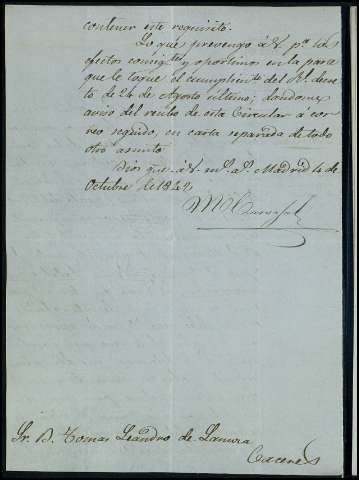 contener este requisito.
Lo que prevengo á V. pa. los
efectos consigtes. y oportunos en la parte
que le toque el cumplimto. del Rl. decre
to de 24 de Agosto último; dandome
aviso del recibo de esta Circular a cor
reo seguido, en carta separada de todo
otro asunto.
Dios gue. á V. ms. as. Madrid 4 de
Octubre de 1842,
Sr. D. Tomas Leandro de
Caceres